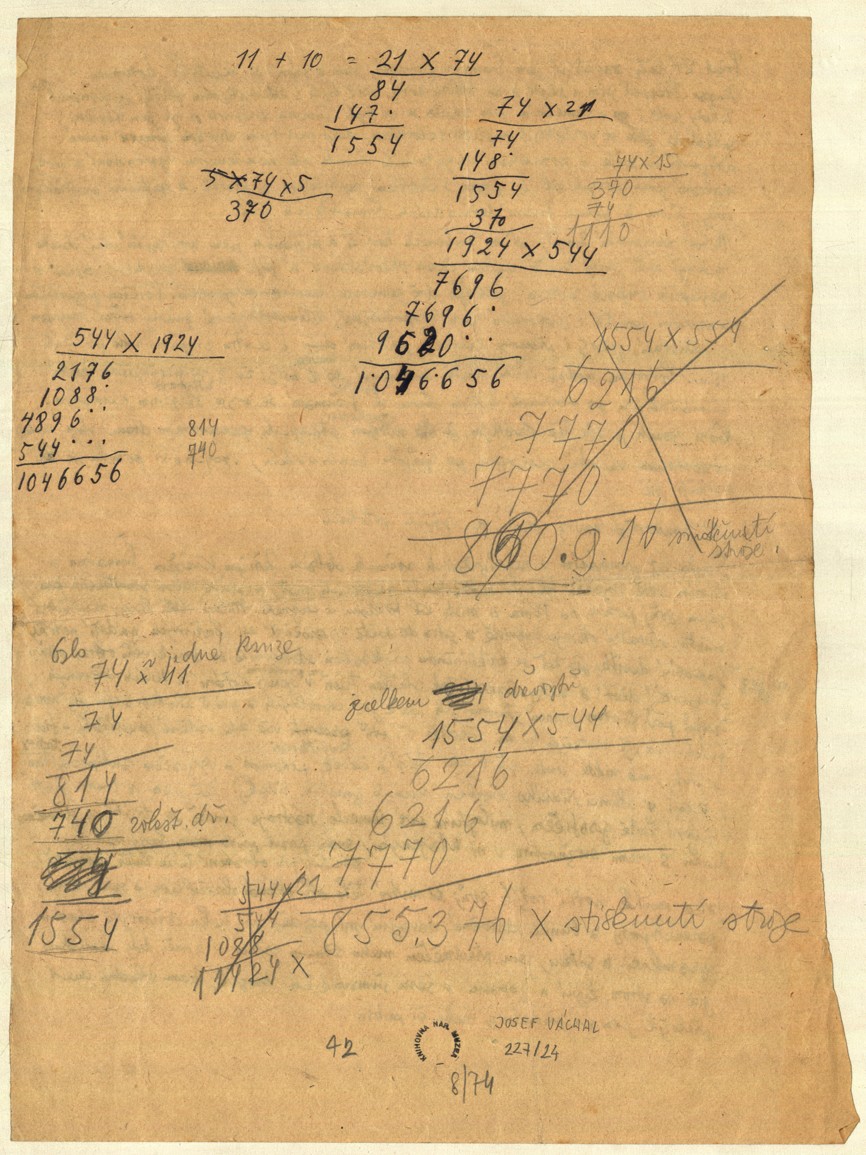 11 + 10 = 21 x 74
84
147·
1554
74 x 21
74
148·
1554
370
1924 x 544
7696
7696·
9620··
1·046·656
74x15
370
74
1110
5 x 74 x 5
370
544 x 1924
2176
1088·
4896··
544···
1046656
814
740
1554 x 554
6216
7770
7770
860.916
stroje.
v jedné knize
74 x 11
74
74
814
740 zvlášt. dř.
1554
celkem
1554 x 544
6216
6216
7770
855.376 x stisknutí stroje
544x21
544
1088
11424 x
42
KNIHOVNA NÁR. MUZEA
JOSEF VÁCHAL
227/24
8/74